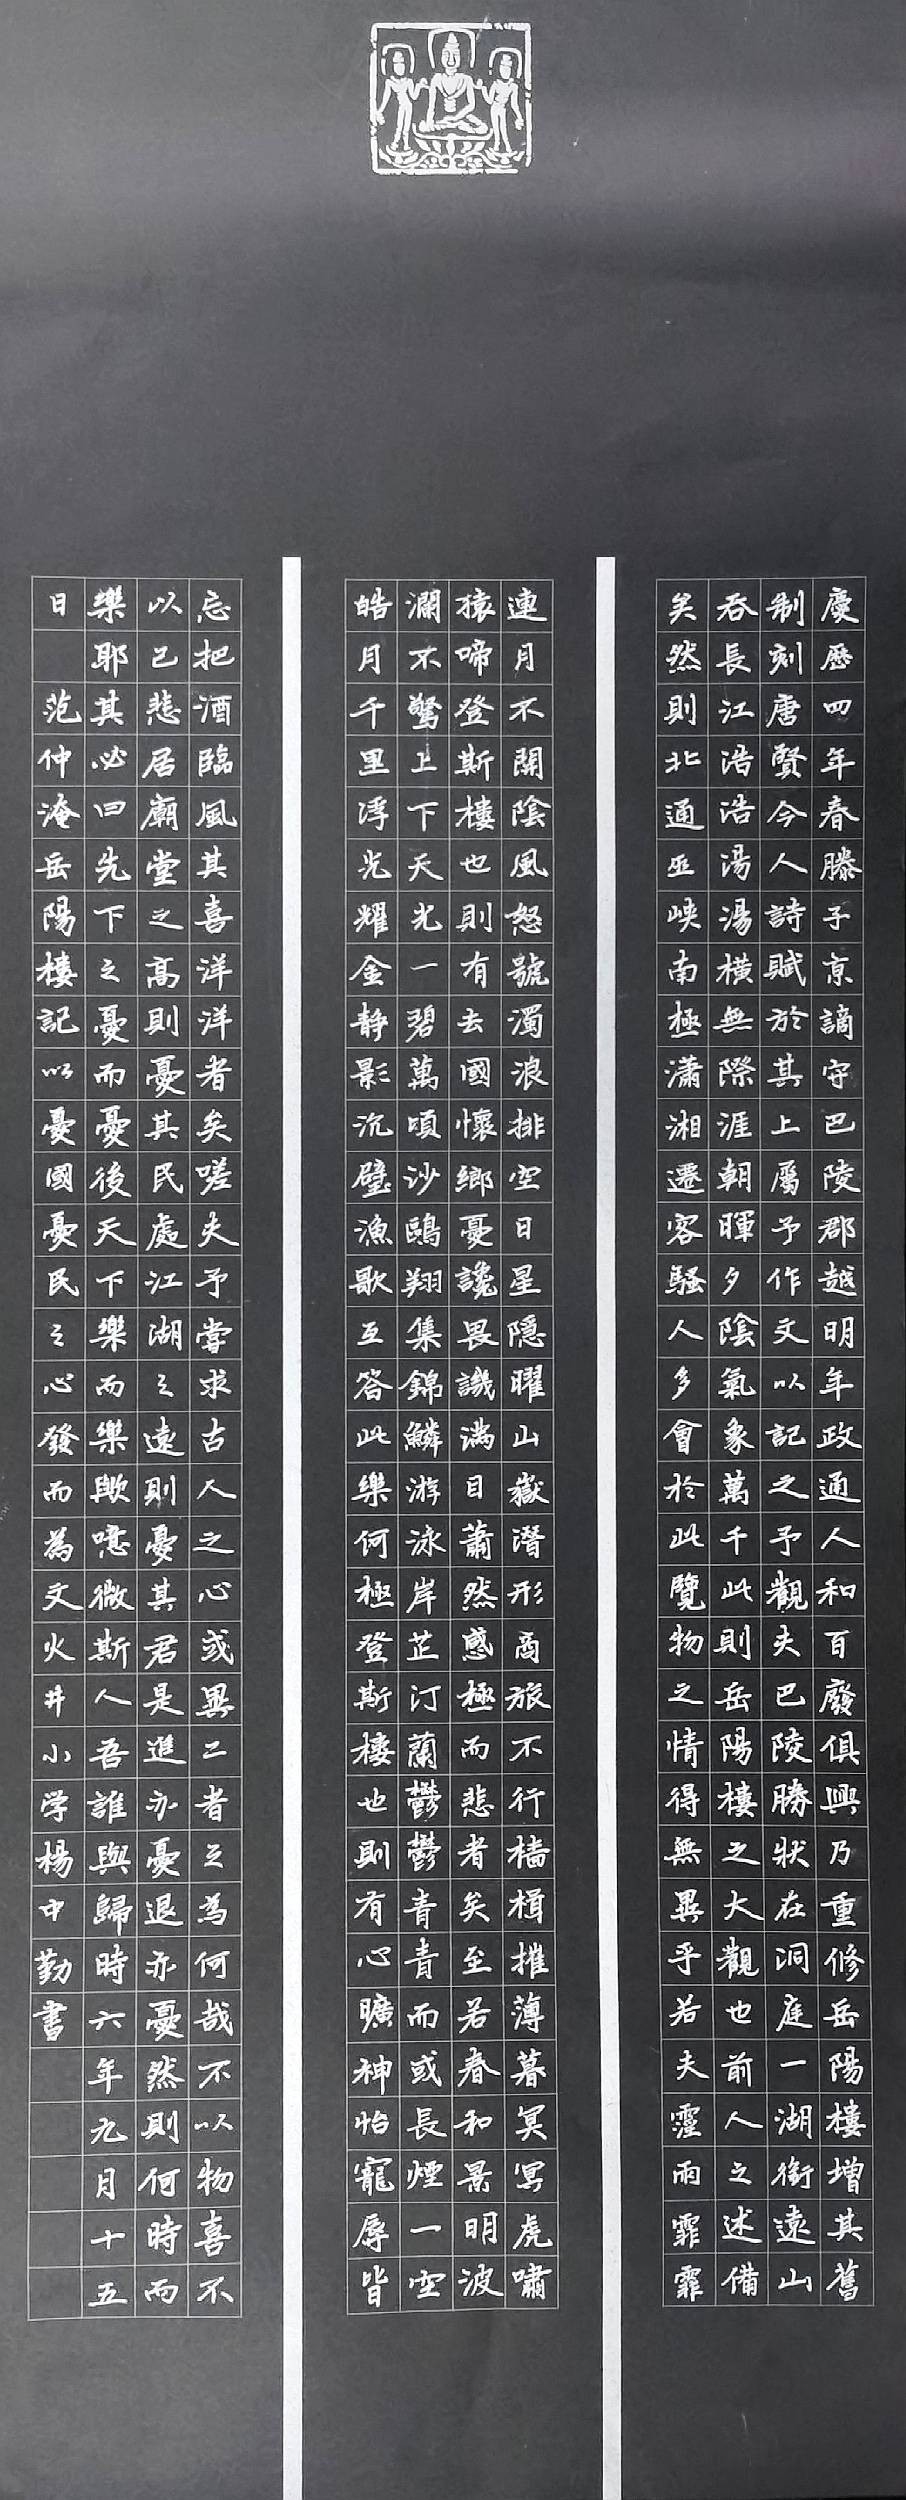 慶歷四年春滕子京謫守巴陵郡越明年政通人和百廢俱興乃重修岳陽樓增其舊
制刻唐賢今人詩賦於其上屬予作文以記之予觀夫巴陵勝狀在洞庭一湖銜遠山
吞長江浩浩湯湯橫無際涯朝暉夕陰氣象萬千此則岳陽樓之大觀也前人之述備
矣然則北通巫峽南極瀟湘遷客騷人多會於此覽物之情得無異乎若夫霪雨霏霏
連月不開陰風怒號濁浪排空日星隱曜山嶽潛形商旅不行檣楫摧薄暮冥冥虎嘯
猿啼登斯樓也則有去國懷鄉憂讒畏譏滿目蕭然感極而悲者矣至若春和景明波
瀾不驚上下天光一碧萬頃沙鷗翔集錦鱗游泳岸芷汀蘭鬱鬱青青而或長煙一空
皓月千里浮光耀金靜影沉璧漁歌互答此樂何極登斯樓也則有心曠神怡寵辱皆
忘把酒臨風其喜洋洋者矣嗟夫予嘗求古人之心或異二者之為何哉不以物喜不
以己悲居廟堂之高則憂其民處江湖之遠則憂其君是進亦憂退亦憂然則何時而
樂耶其必曰先下之憂而憂後天下樂而樂歟噫微斯人吾誰與歸時六年九月十五
日 范仲淹岳陽樓記以憂國憂民之心發而為文火井小学楊中勤書